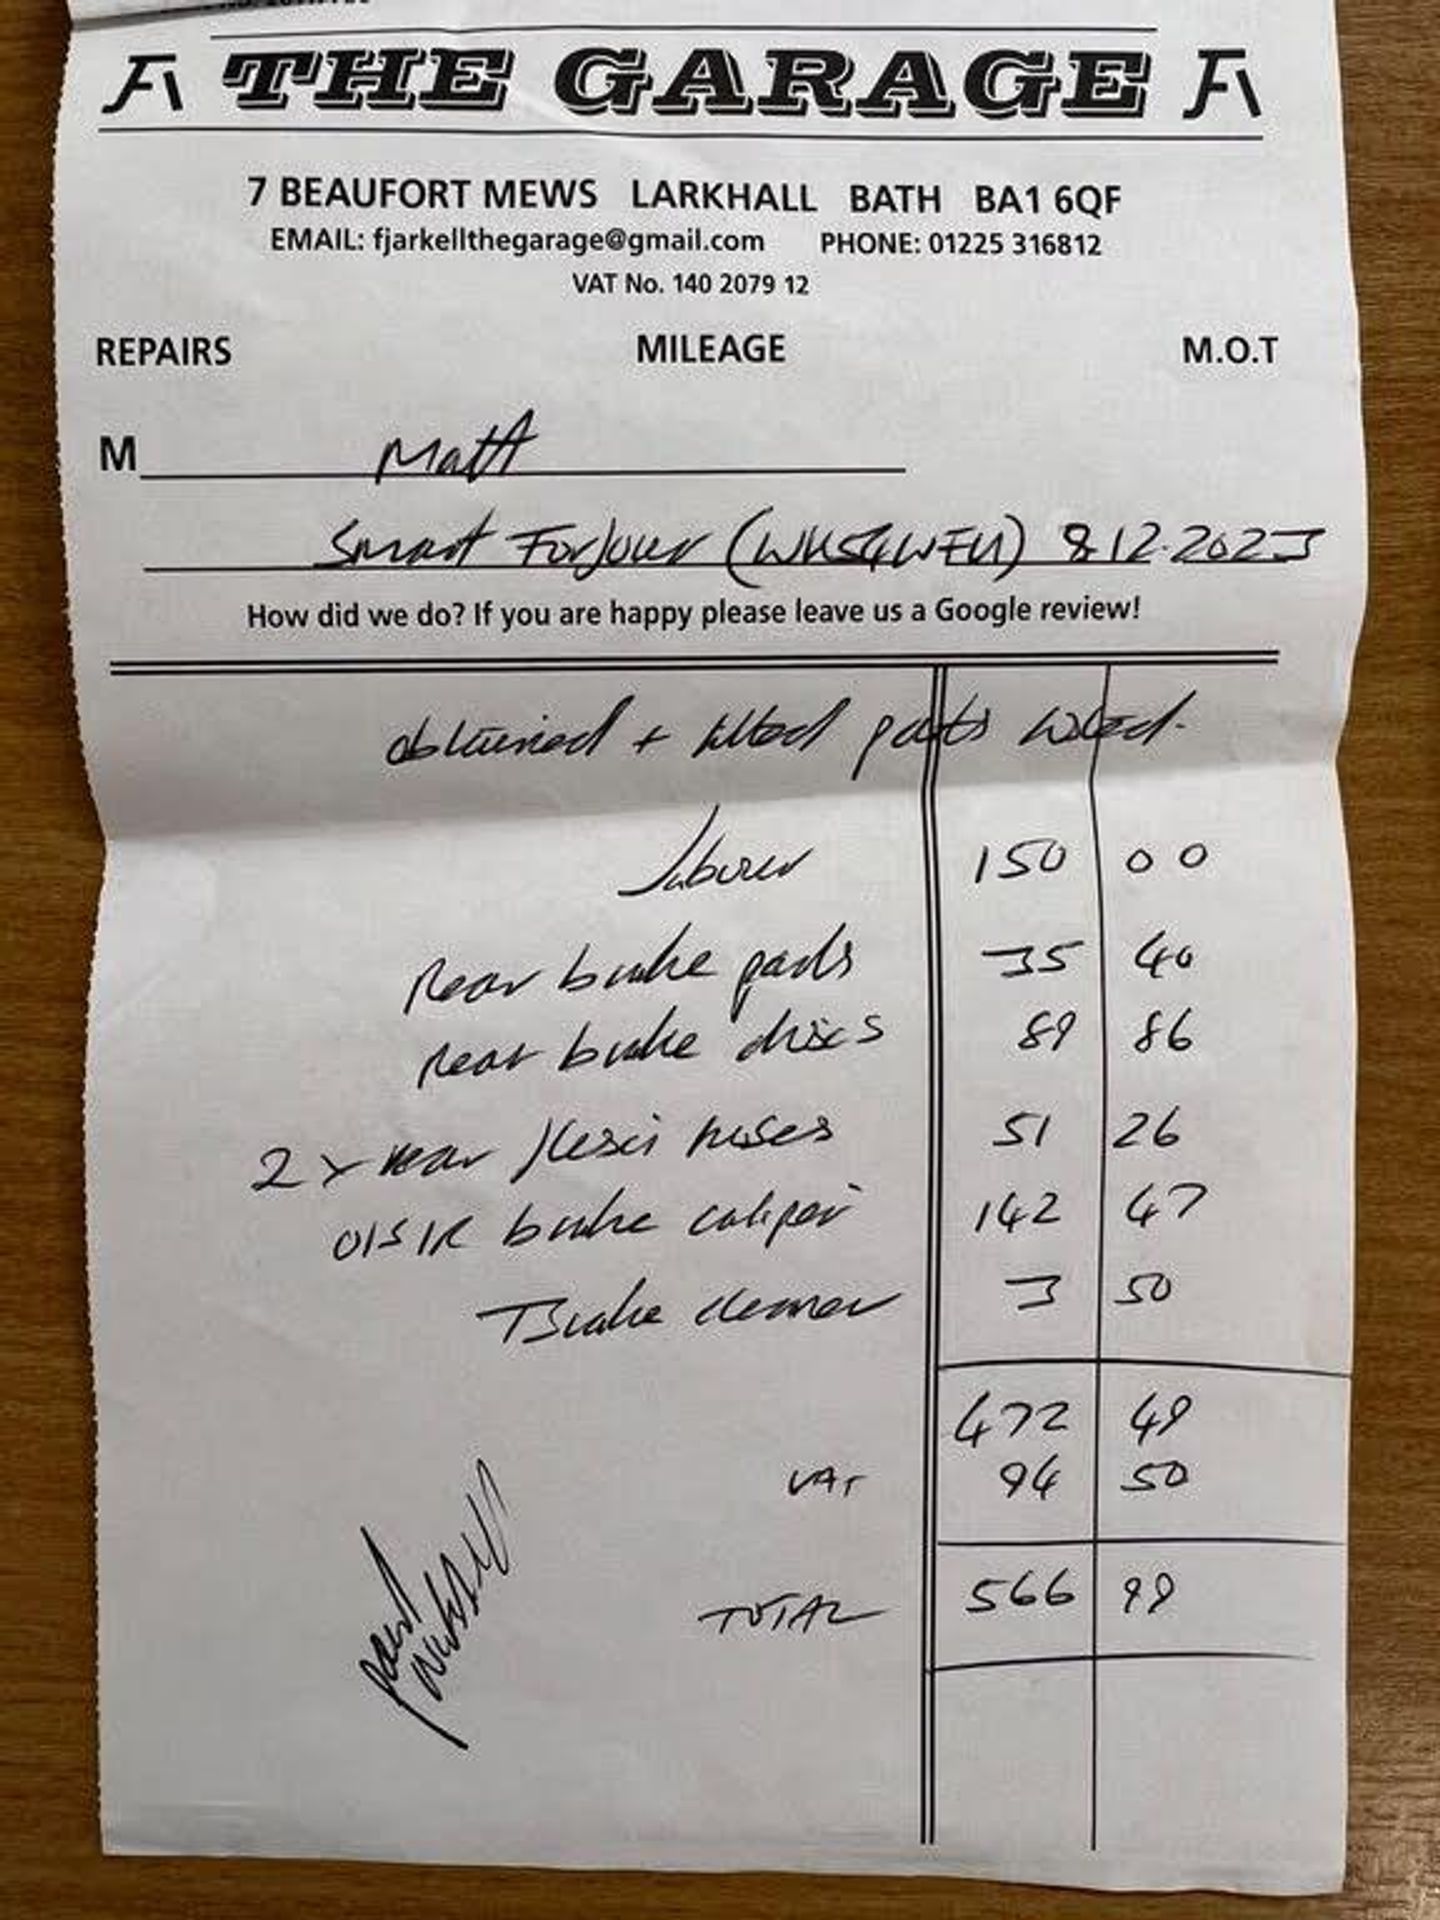 FJ THE GARAGE FJ
7 BEAUFORT MEWS LARKHALL BATH BA1 6QF
EMAIL: fjarkellthegarage@gmail.com PHONE: 01225 316812
VAT No. 140 2079 12
REPAIRS MILEAGE M.O.T
M Matt
Smart Forfour (WK54WFU) 8.12.2023
How did we do? If you are happy please leave us a Google review!
obtained + fitted parts listed.
Labour 150 00
Rear brake pads 35 40
rear brake discs 89 86
2 x rear flexi hoses 51 26
O/S/R brake caliper 142 47
Brake cleaner 3 50
472 49
VAT 94 50
TOTAL 566 99
paid